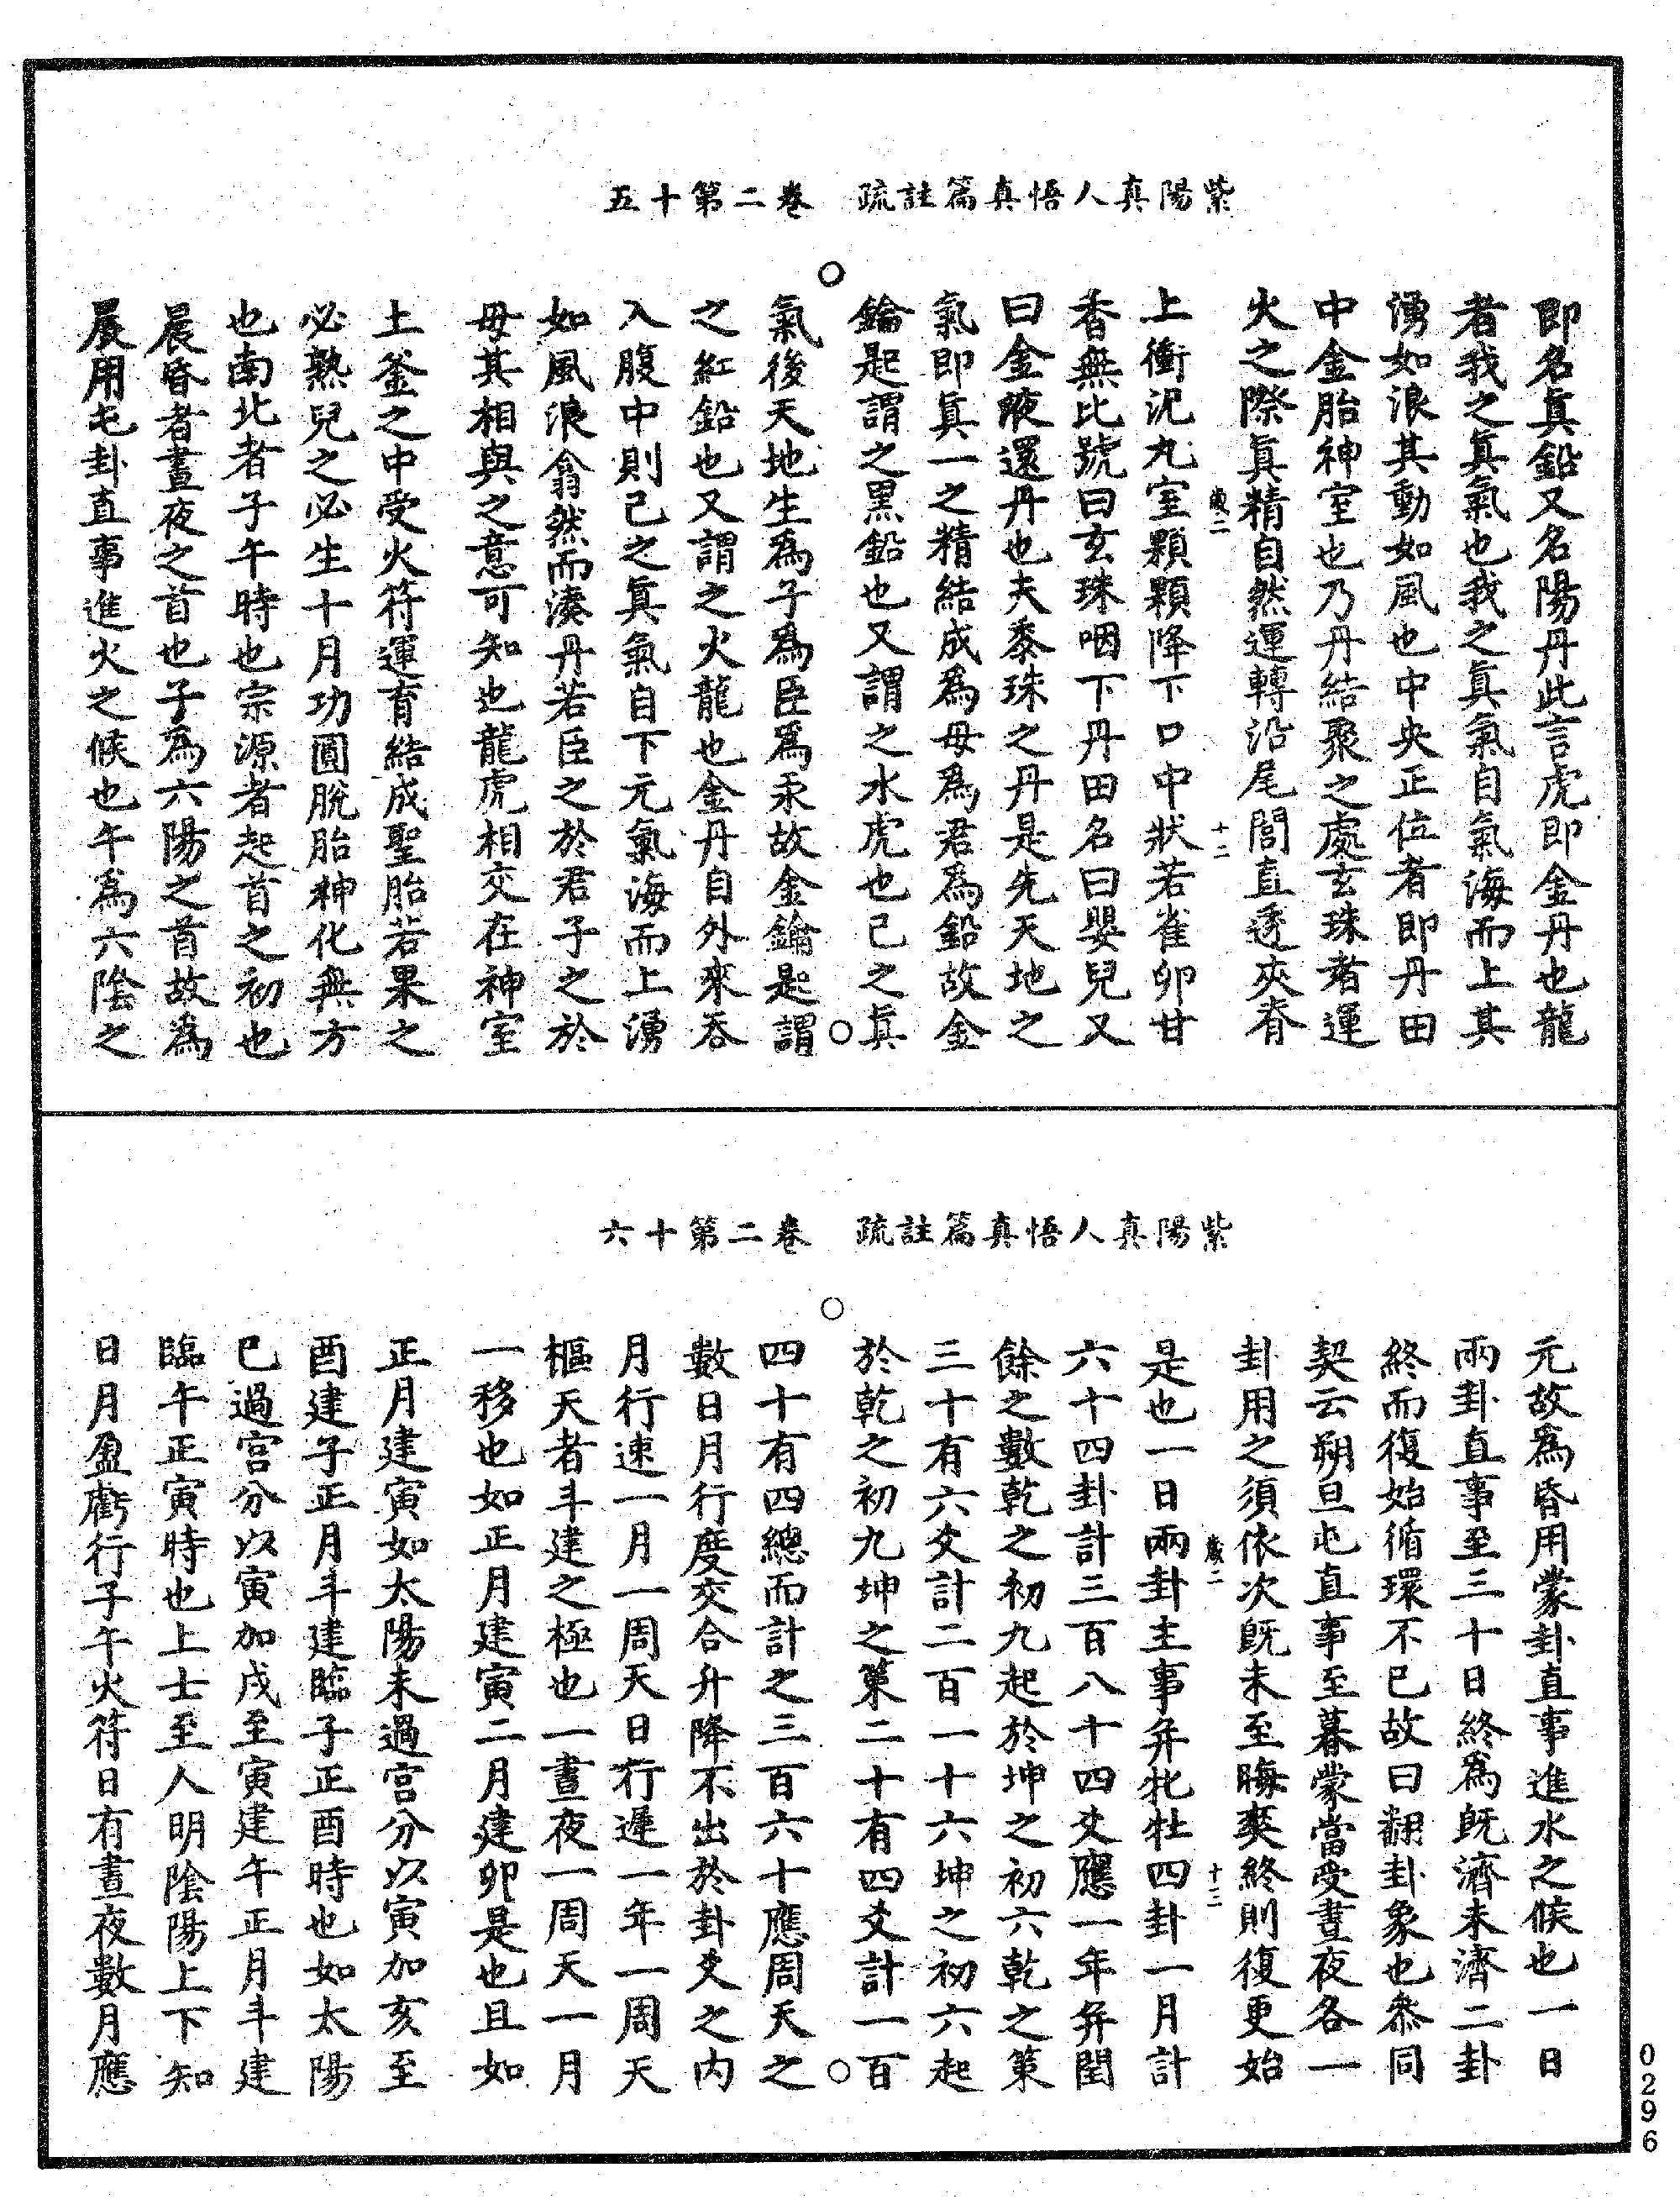 紫陽真人悟真篇註疏 卷二第十五
即名真鉛又名陽丹此言虎即金丹也龍
者我之真氣也我之真氣自氣海而上其
湧如浪其動如風也中央正位者即丹田
中金胎神室也乃丹結聚之處玄珠者運
火之際真精自然運轉沿尾閭直透夾脊
歲二 十二
上衝泥丸室顆顆降下口中狀若雀卵甘
香無比號曰玄珠咽下丹田名曰嬰兒又
曰金液還丹也夫黍珠之丹是先天地之
氣即真一之精結成為母為君為鉛故金
鑰匙謂之黑鉛也又謂之水虎也己之真
氣後天地生為子為臣為汞故金鑰匙謂
之紅鉛也又謂之火龍也金丹自外來吞
入腹中則己之真氣自下元氣海而上湧
如風浪翕然而湊丹若臣之於君子之於
母其相與之意可知也龍虎相交在神室
土釜之中受火符運育結成聖胎若果之
必熟兒之必生十月功圓脫胎神化無方
也南北者子午時也宗源者起首之初也
晨昏者晝夜之首也子為六陽之首故為
晨用屯卦直事進火之候也午為六陰之
紫陽真人悟真篇註疏 卷二第十六
元故為昏用蒙卦直事進水之候也一日
兩卦直事至三十日終為既濟未濟二卦
終而復始循環不已故曰翻卦象也叅同
契云朔旦屯直事至暮蒙當受晝夜各一
卦用之須依次既未至晦爽終則復更始
歲二 十三
是也一日兩卦主事弁牝牡四卦一月計
六十四卦計三百八十四爻應一年弁閏
餘之數乾之初九起於坤之初六乾之策
三十有六爻計二百一十六坤之初六起
於乾之初九坤之策二十有四爻計一百
四十有四總而計之三百六十應周天之
數日月行度交合升降不出於卦爻之內
月行速一月一周天日行遲一年一周天
樞天者斗建之極也一晝夜一周天一月
一移也如正月建寅二月建卯是也且如
正月建寅如太陽未過宮分以寅加亥至
酉建子正月斗建臨子正酉時也如太陽
巳過宮分以寅加戌至寅建午正月斗建
臨午正寅時也上士至人明陰陽上下知
日月盈虧行子午火符日有晝夜數月應
0296